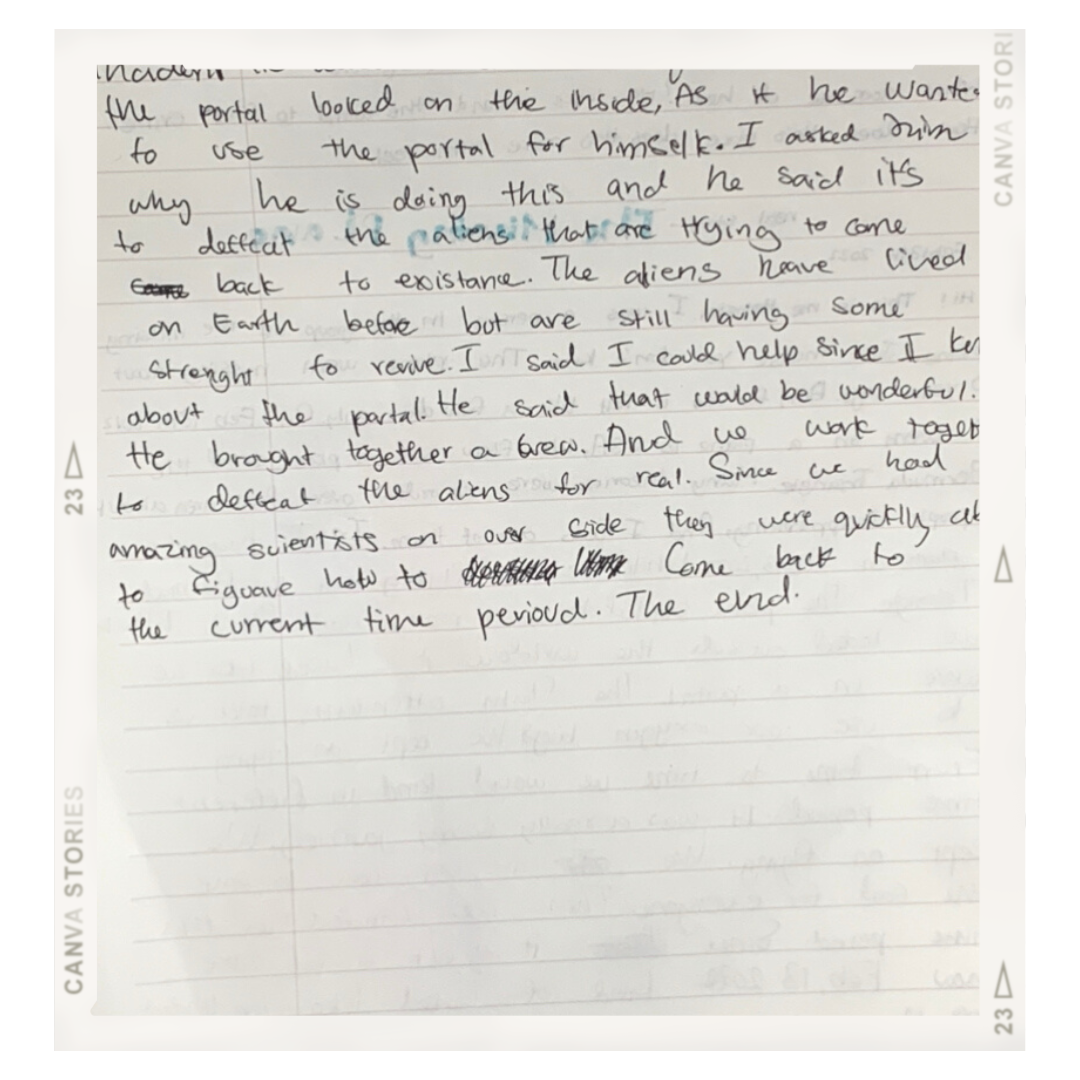 the portal looked on the inside, As if he wante
to use the portal for himself. I asked him
why he is doing this and he said it's
to deffeat the aliens that are trying to come
back to existance. The aliens heave lived
on Earth before but are still having some
Strenght to revive. I said I could help since I
about the portal. He said that would be wonderful.
He brought together a Grew. And we work toget
to deffeat the aliens for real. Since we had
amazing scientists on over side they were quickly ab
to figuave how to Come back to
the current time perioud. The end.
CANVA STORIES
23
CANVA STORI
23